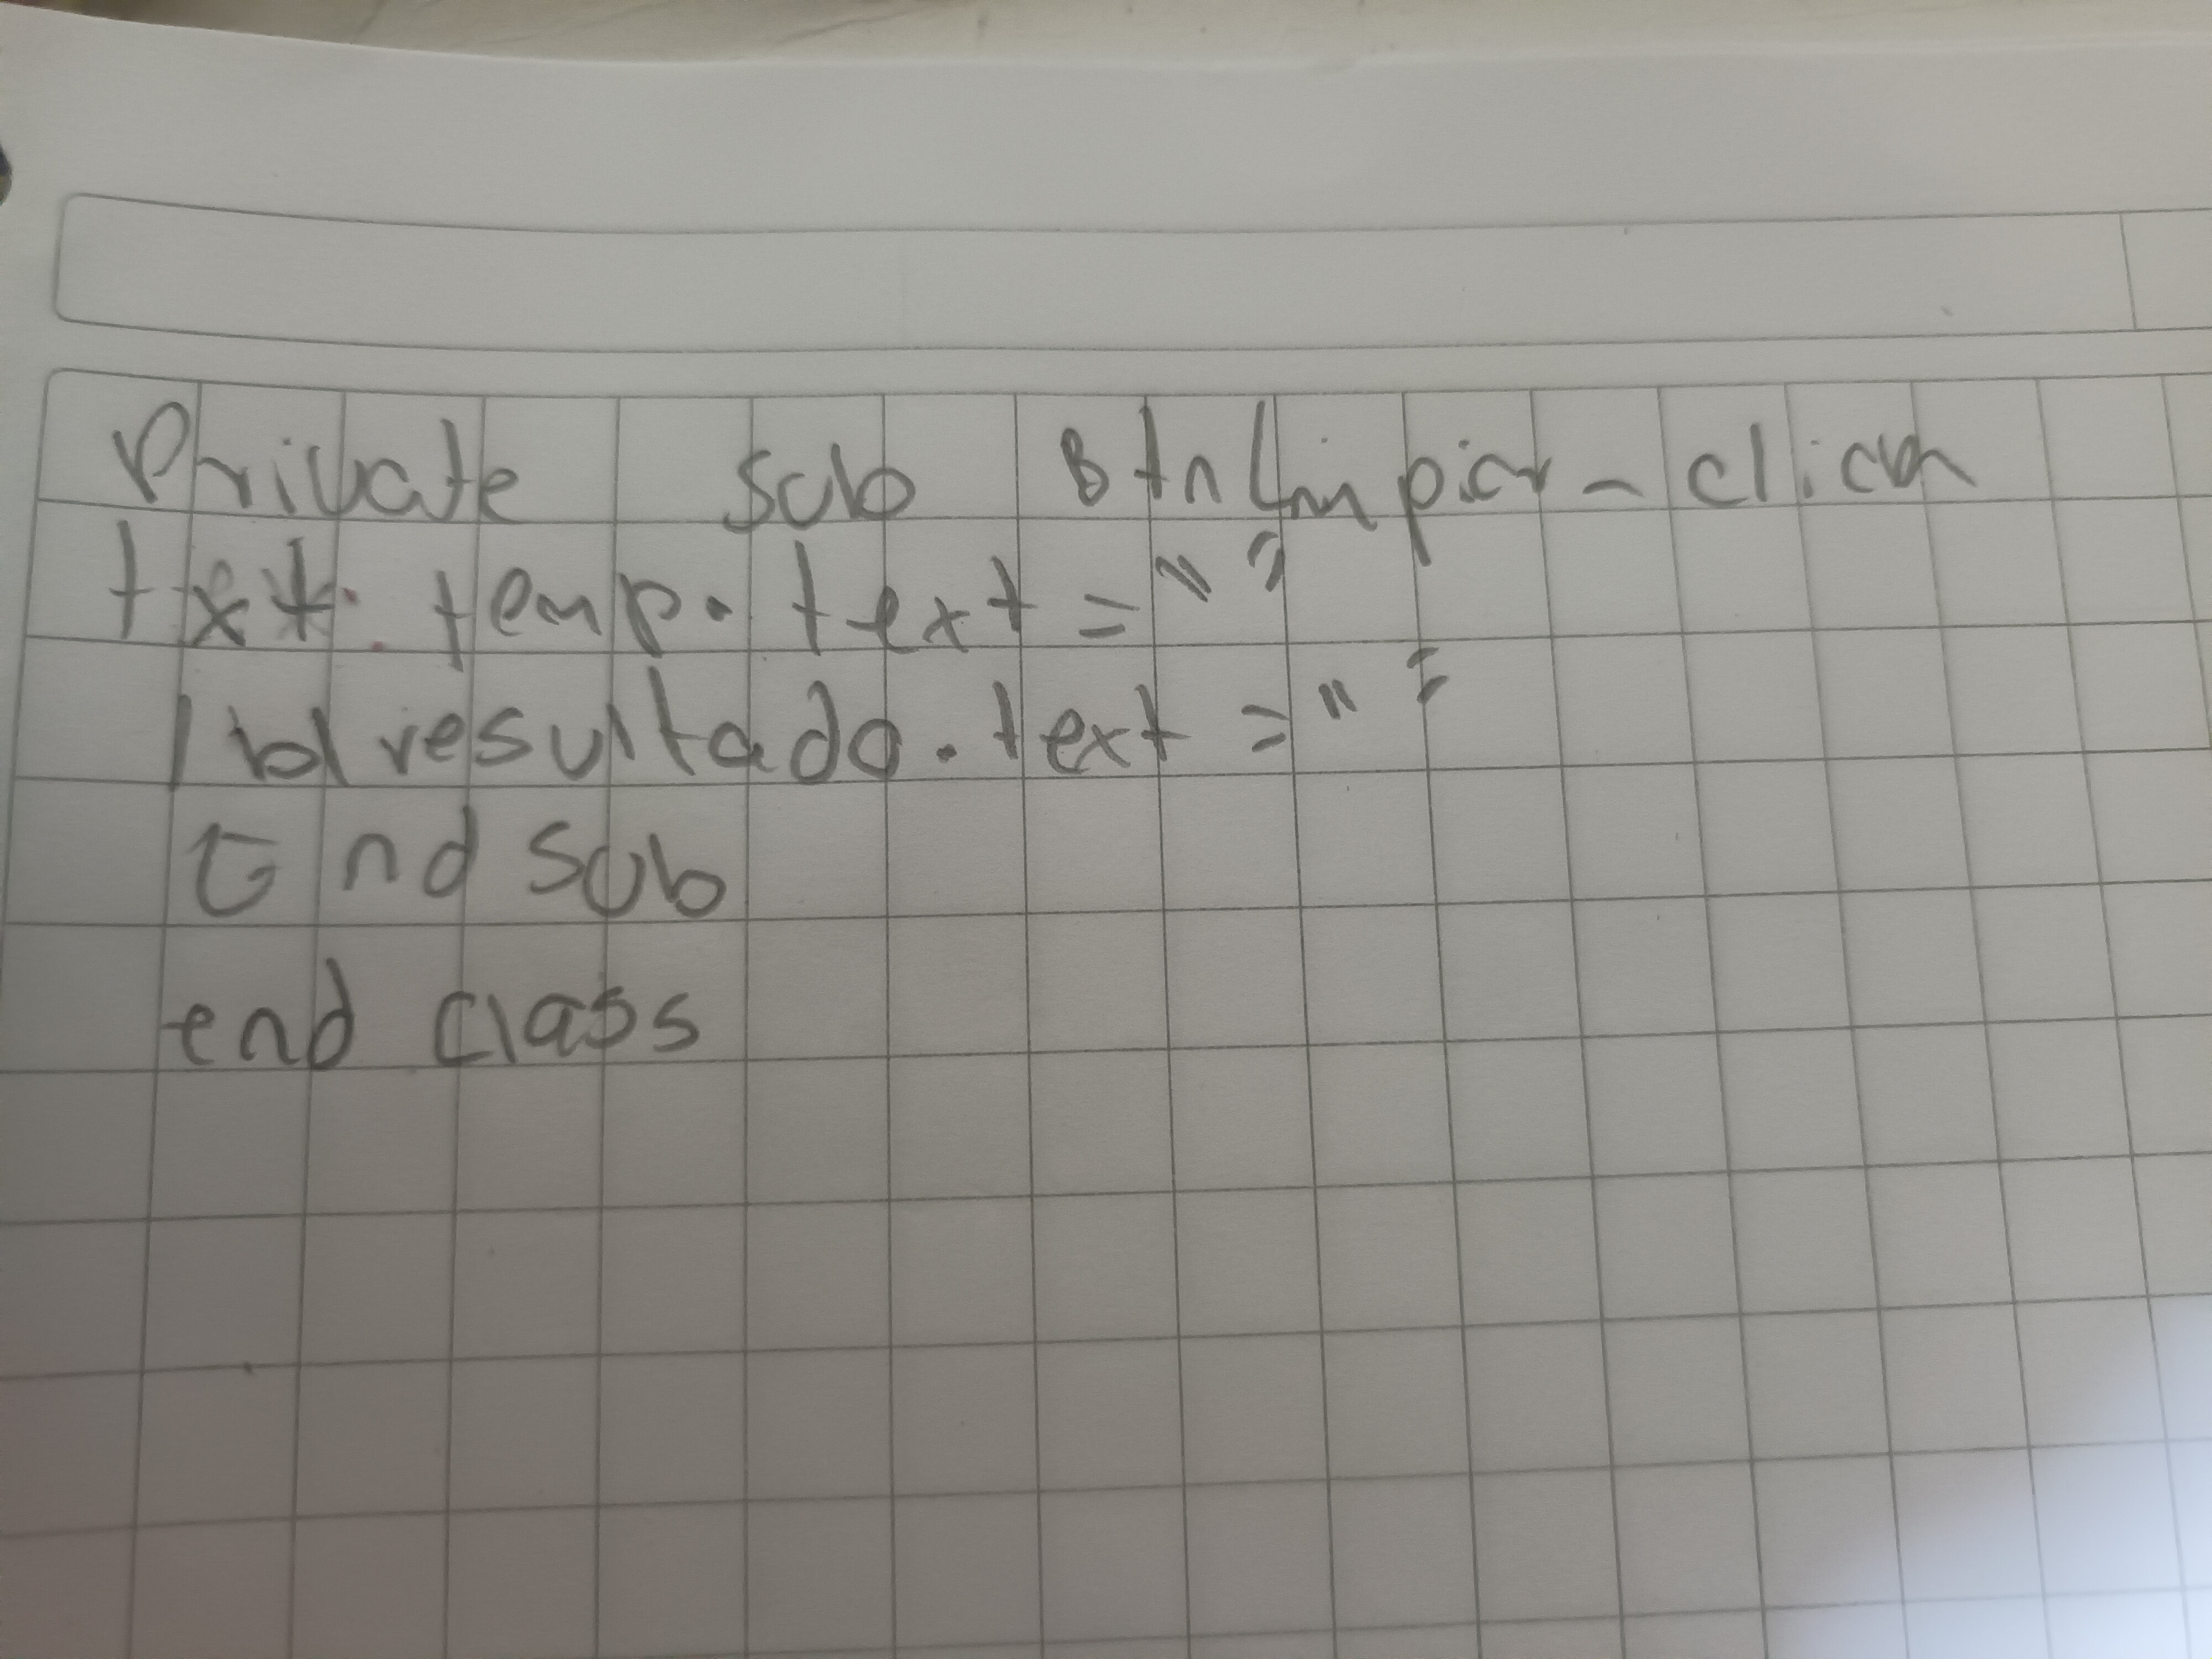 Private sub BtnLimpiar-click
txt. temp. text = " "
lbl resultado. text = " "
End sub
end class